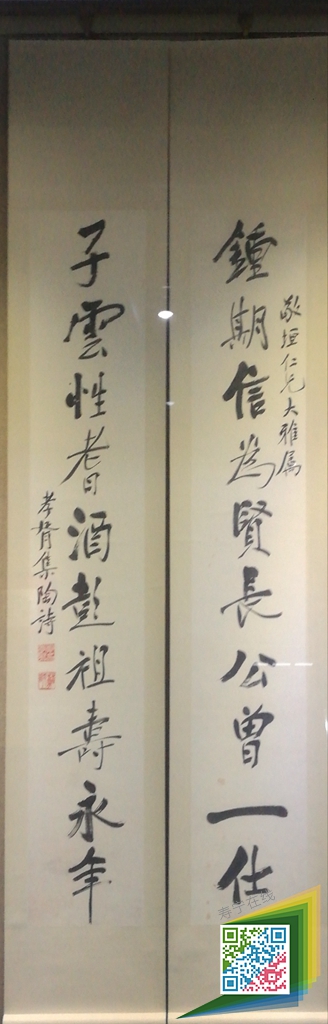 敬垣仁兄大雅属
鍾期信為賢長公曾一仕
子雲性耆酒彭祖壽永年
孝胥集陶詩
寿宁在线